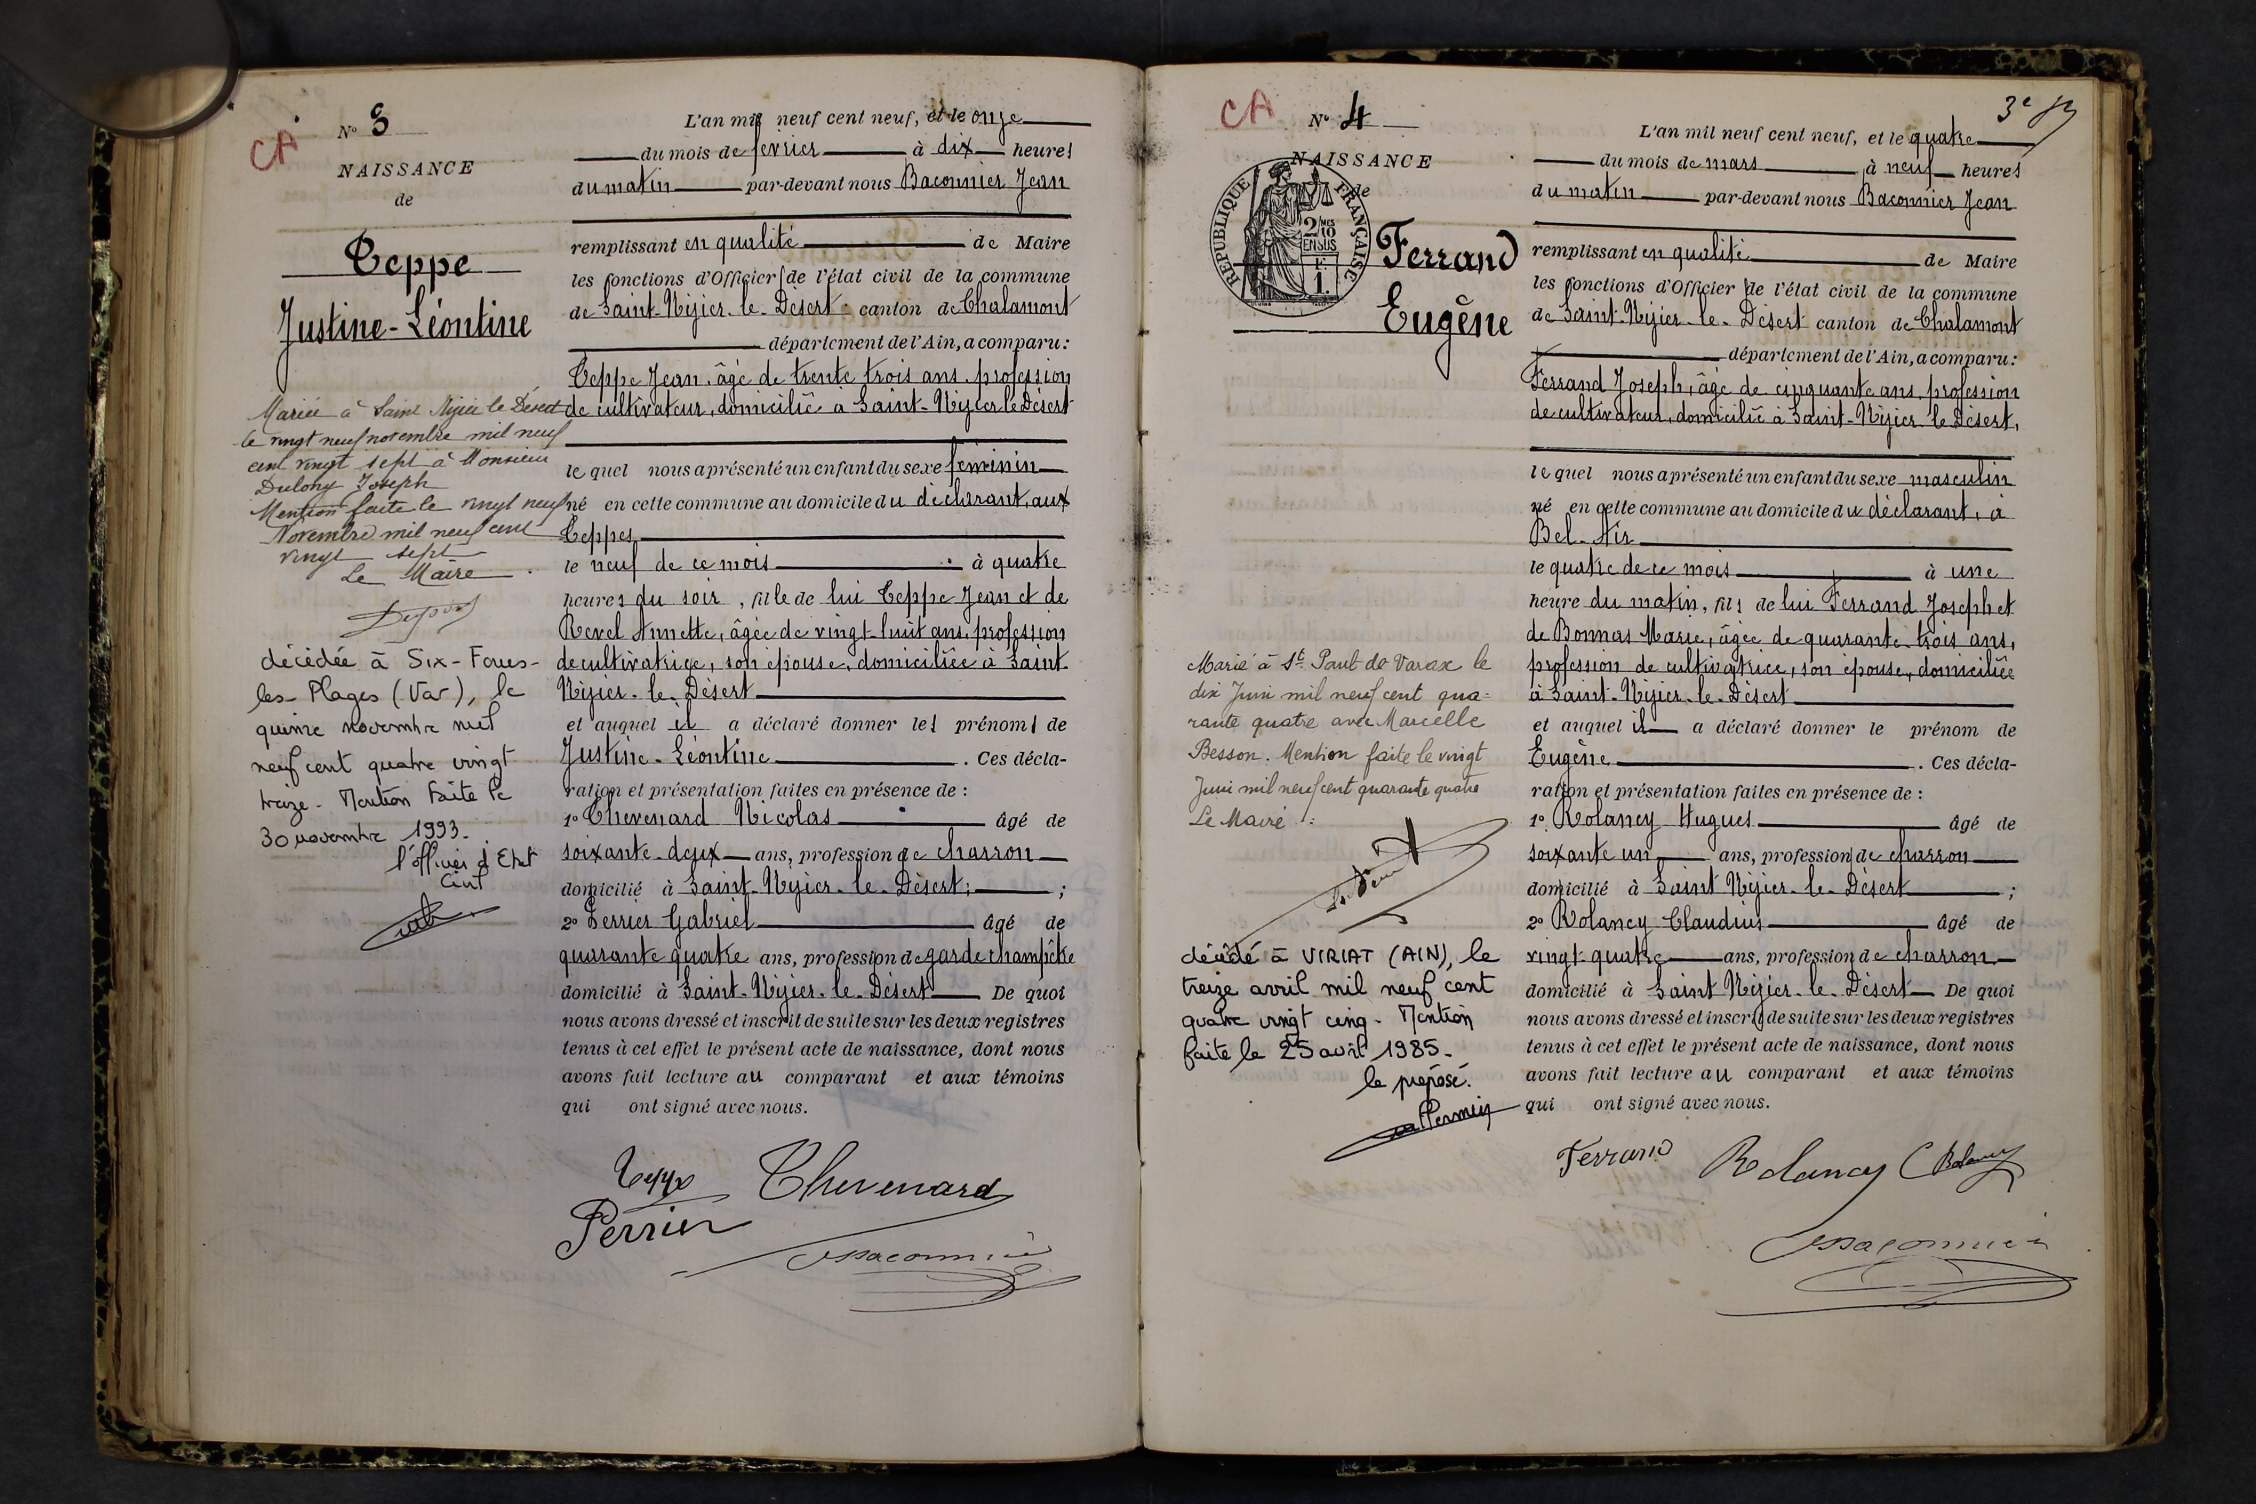 CA
N° 3
NAISSANCE
de
Teppe
Justine-Léontine
Mariée à Saint Nizier le Désert
le vingt neuf novembre mil neuf
cent vingt sept à Monsieur
Joseph
Mention faite le vingt neuf
Novembre mil neuf cent
vingt sept
Le Maire
décédée à Six-Fours-
les-Plages (Var), le
quinze novembre mil
neuf cent quatre vingt
treize - Mention faite le
30 novembre 1993.
l'officier d'Etat
Civil
L'an mil neuf cent neuf, et le onze
du mois de février à dix heures
du matin par-devant nous Baconnier Jean
remplissant en qualité de Maire
les fonctions d'Officier de l'état civil de la commune
de Saint-Nizier-le-Désert canton de Chalamont
département de l'Ain, a comparu:
Teppe Jean, âgé de trente trois ans, profession
de cultivateur, domicilié à Saint-Nizier le Désert
lequel nous a présenté un enfant du sexe féminin
né en cette commune au domicile du déclarant, aux
Teppes
le neuf de ce mois à quatre
heures du soir, fille de lui Teppe Jean et de
Revel Annette, âgée de vingt-huit ans, profession
de cultivatrice, son épouse, domiciliée à Saint-
Nizier-le-Désert
et auquel il a déclaré donner les prénoms de
Justine-Léontine. Ces décla-
ration et présentation faites en présence de :
1° Chevenard Nicolas âgé de
soixante-deux ans, profession de charron
domicilié à Saint-Nizier-le-Désert; ;
2° Perrier Gabriel âgé de
quarante quatre ans, profession de garde champêtre
domicilié à Saint-Nizier-le-Désert De quoi
nous avons dressé et inscrit de suite sur les deux registres
tenus à cet effet le présent acte de naissance, dont nous
avons fait lecture au comparant et aux témoins
qui ont signé avec nous.
Teppe Chevenard
Perrier
Baconnier
3e
CA
N° 4
NAISSANCE
de
REPUBLIQUE FRANÇAISE
2/10 EN SUS
1F.
Ferrand
Eugène
Marié à St Paul de Varax le
dix Juin mil neuf cent qua-
rante quatre avec Marcelle
Besson. Mention faite le vingt
Juin mil neuf cent quarante quatre
Le Maire :
décédé à VIRIAT (AIN), le
treize avril mil neuf cent
quatre vingt cinq - Mention
faite le 25 avril 1985.
le préposé.
L'an mil neuf cent neuf, et le quatre
du mois de mars à neuf heures
du matin par-devant nous Baconnier Jean
remplissant en qualité de Maire
les fonctions d'Officier de l'état civil de la commune
de Saint-Nizier-le-Désert canton de Chalamont
département de l'Ain, a comparu:
Ferrand Joseph, âgé de cinquante ans, profession
de cultivateur, domicilié à Saint-Nizier le Désert,
lequel nous a présenté un enfant du sexe masculin
né en cette commune au domicile du déclarant, à
Bel-Air
le quatre de ce mois à une
heure du matin, fils de lui Ferrand Joseph et
de Bonnas Marie, âgée de quarante-trois ans,
profession de cultivatrice, son épouse, domiciliée
à Saint-Nizier-le-Désert
et auquel il a déclaré donner le prénom de
Eugène. Ces décla-
ration et présentation faites en présence de :
1° Rolancy Hugues âgé de
soixante un ans, profession de charron
domicilié à Saint Nizier-le-Désert ;
2° Rolancy Claudius âgé de
vingt-quatre ans, profession de charron
domicilié à Saint Nizier-le-Désert De quoi
nous avons dressé et inscrit de suite sur les deux registres
tenus à cet effet le présent acte de naissance, dont nous
avons fait lecture au comparant et aux témoins
qui ont signé avec nous.
Ferrand Rolancy C Rolancy
Baconnier